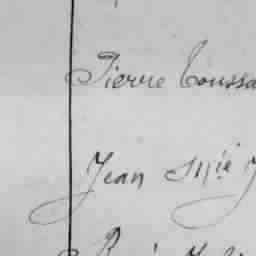 Pierre Toussa
Jean Mie J